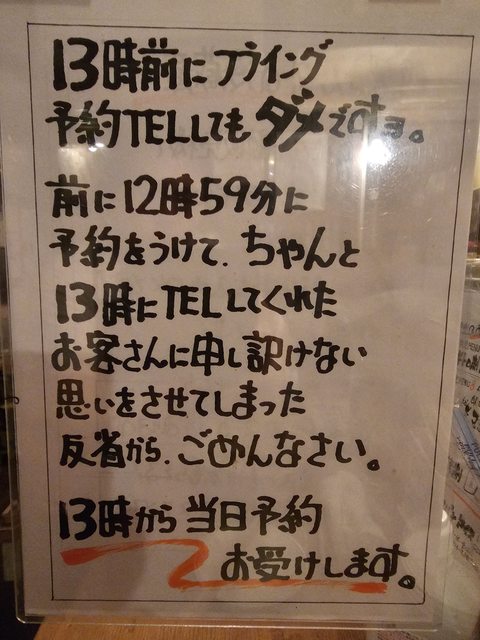 13時前にフライング
予約TELしてもダメですョ。
前に12時59分に
予約をうけて、ちゃんと
13時にTELしてくれた
お客さんに申し訳けない
思いをさせてしまった
反省から、ごめんなさい。
13時から当日予約
お受けします。